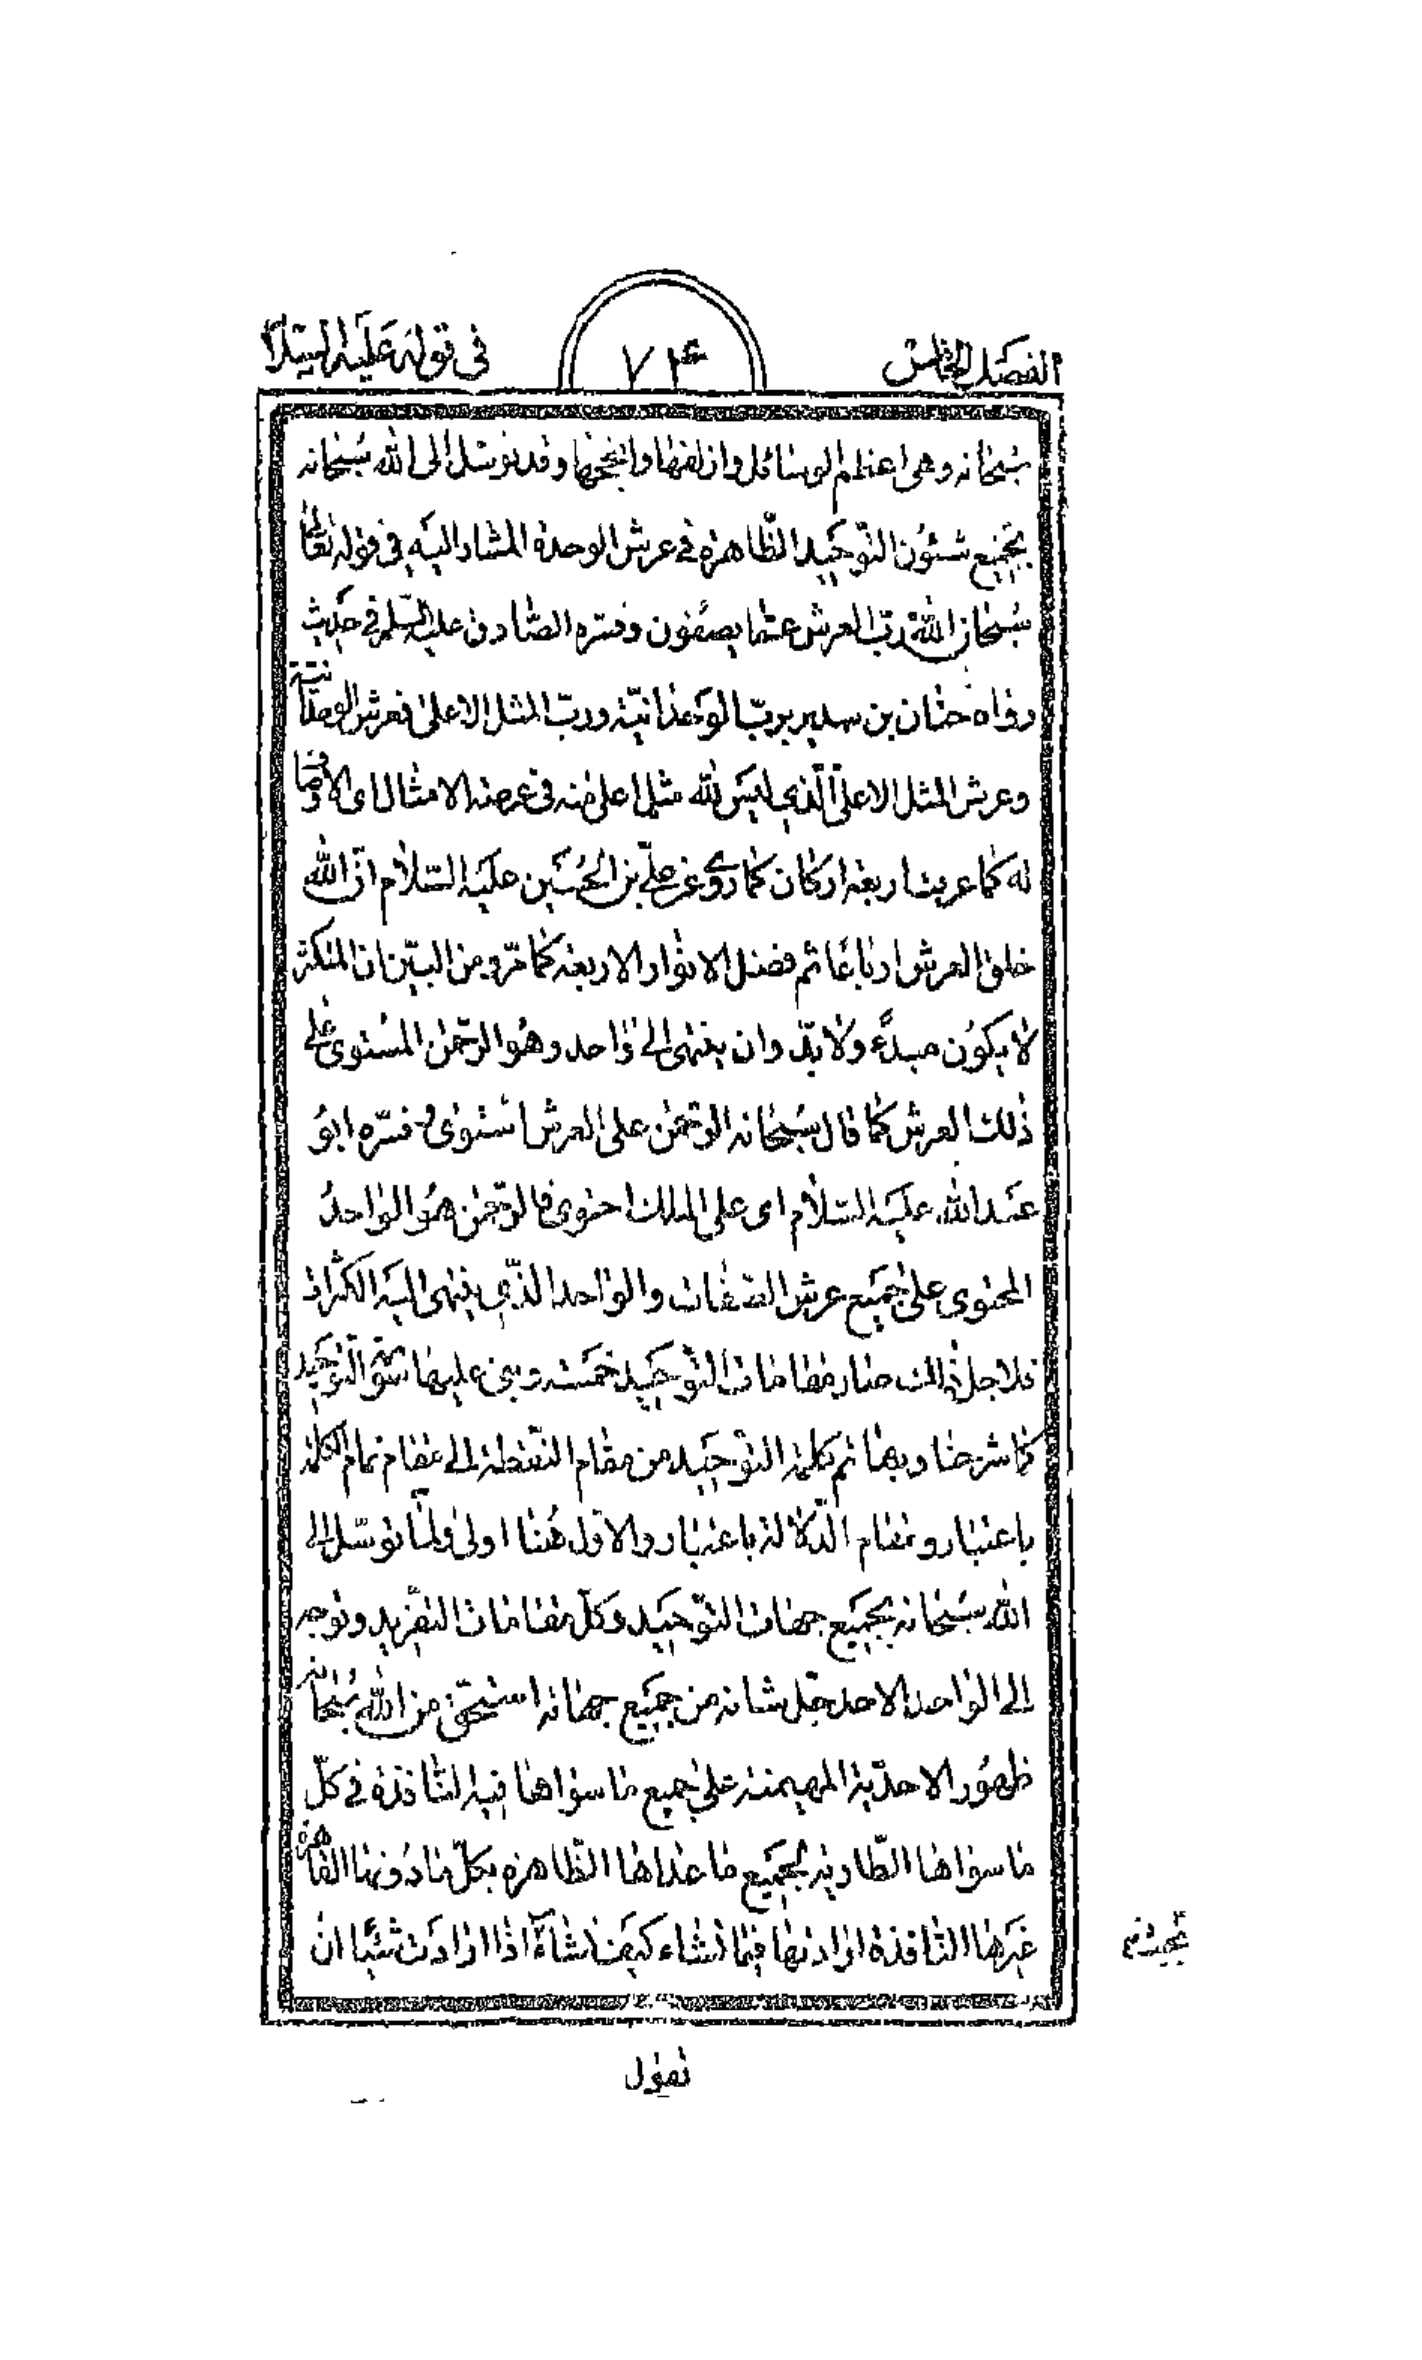 الفصل الخامس
٧٣۴
في قوله عليه السلام
سبحانه وهي اعظم الوسائل وازلفها وانجحها وقد توسل الى الله سبحانه
بجميع شئون التوحيد الظاهرة في عرش الوحدة المشار اليه في قوله تعالى
سبحان الله رب العرش عما يصفون وفسره الصادق عليه السلم في حديث
رواه حنان بن سدير برب الوحدانية ورب المثل الاعلى فعرش الوحدانية
وعرش المثل الاعلى الذي ليس لله مثل اعلى منه في عرصة الامثال اى الاوصاف
له كما عرفت اربعة اركان كما روى عن على بن الحسين عليه السلام ان الله
خلق العرش ارباعا ثم فصل الانوار الاربعة كما مر ومن البين ان المتكثر
لا يكون مبدء ولا بد وان ينتهى الى واحد وهو الرحمن المستوى على
ذلك العرش كما قال سبحانه الرحمن على العرش استوى وفسره ابو
عبد الله عليه السلام اى على الملك احتوى فالرحمن هو الواحد
المحتوى على جميع عرش الصفات والواحد الذي ينتهى اليه الكثرات
فلاجل ذلك صار مقامات التوحيد خمسة وبنى عليها شئو التوحيد
كما شرحنا وبها تم كلمة التوحيد من مقام النقطة الى مقام تمام الكلمة
باعتبار ومقام الدلالة باعتبار والاول هنا اولى ولما توسل الى
الله سبحانه بجميع جهات التوحيد وكل مقامات التفريد وتوجه
الى الواحد الاحد جل شانه من جميع جهاته استحق من الله سبحانه
ظهور الاحدية المهيمنة على جميع ما سواها فيه النافذة في كل
ما سواها الطاوية لجميع ما عداها الظاهرة بكل ما دونها القاهرة
غيرها النافذة ارادتها فيما تشاء كيف تشاء اذا ارادت شيئا ان
تقول